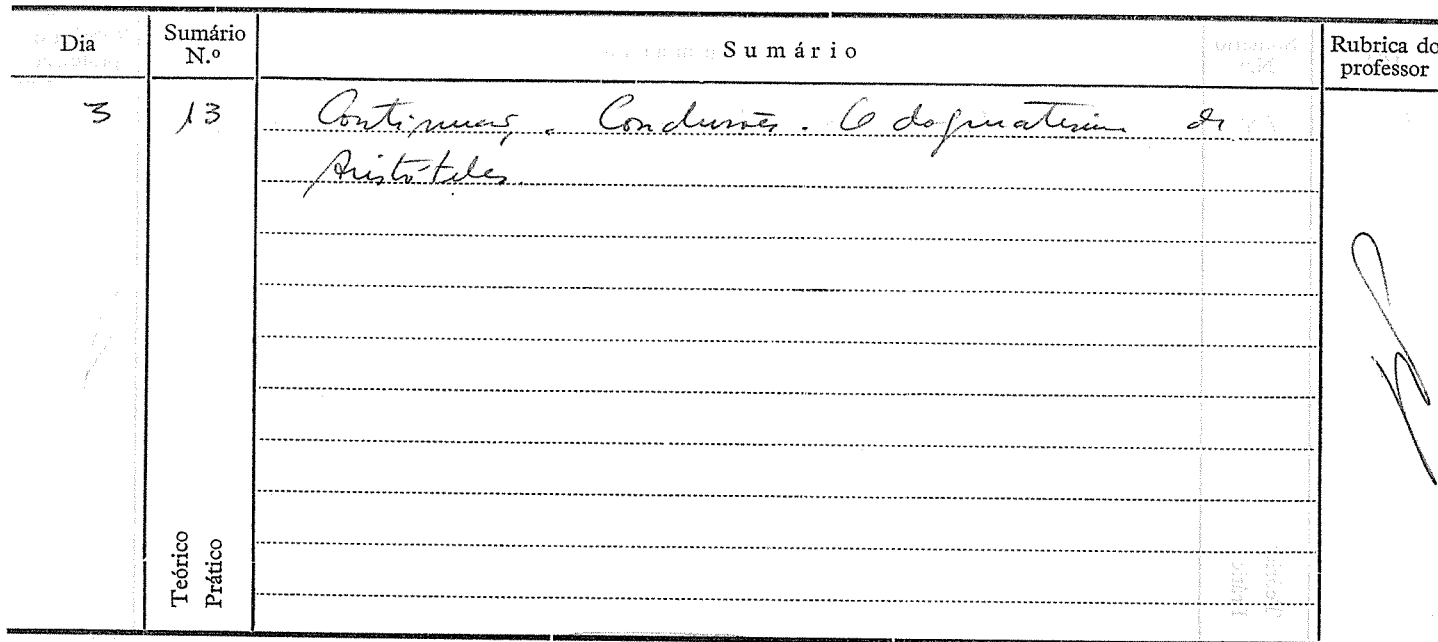 Dia
Sumário
N.º
Sumário
Rubrica do
professor
3
13
Continuaç. Conclusões. O dogmatismo de
Aristóteles.
Teórico
Prático